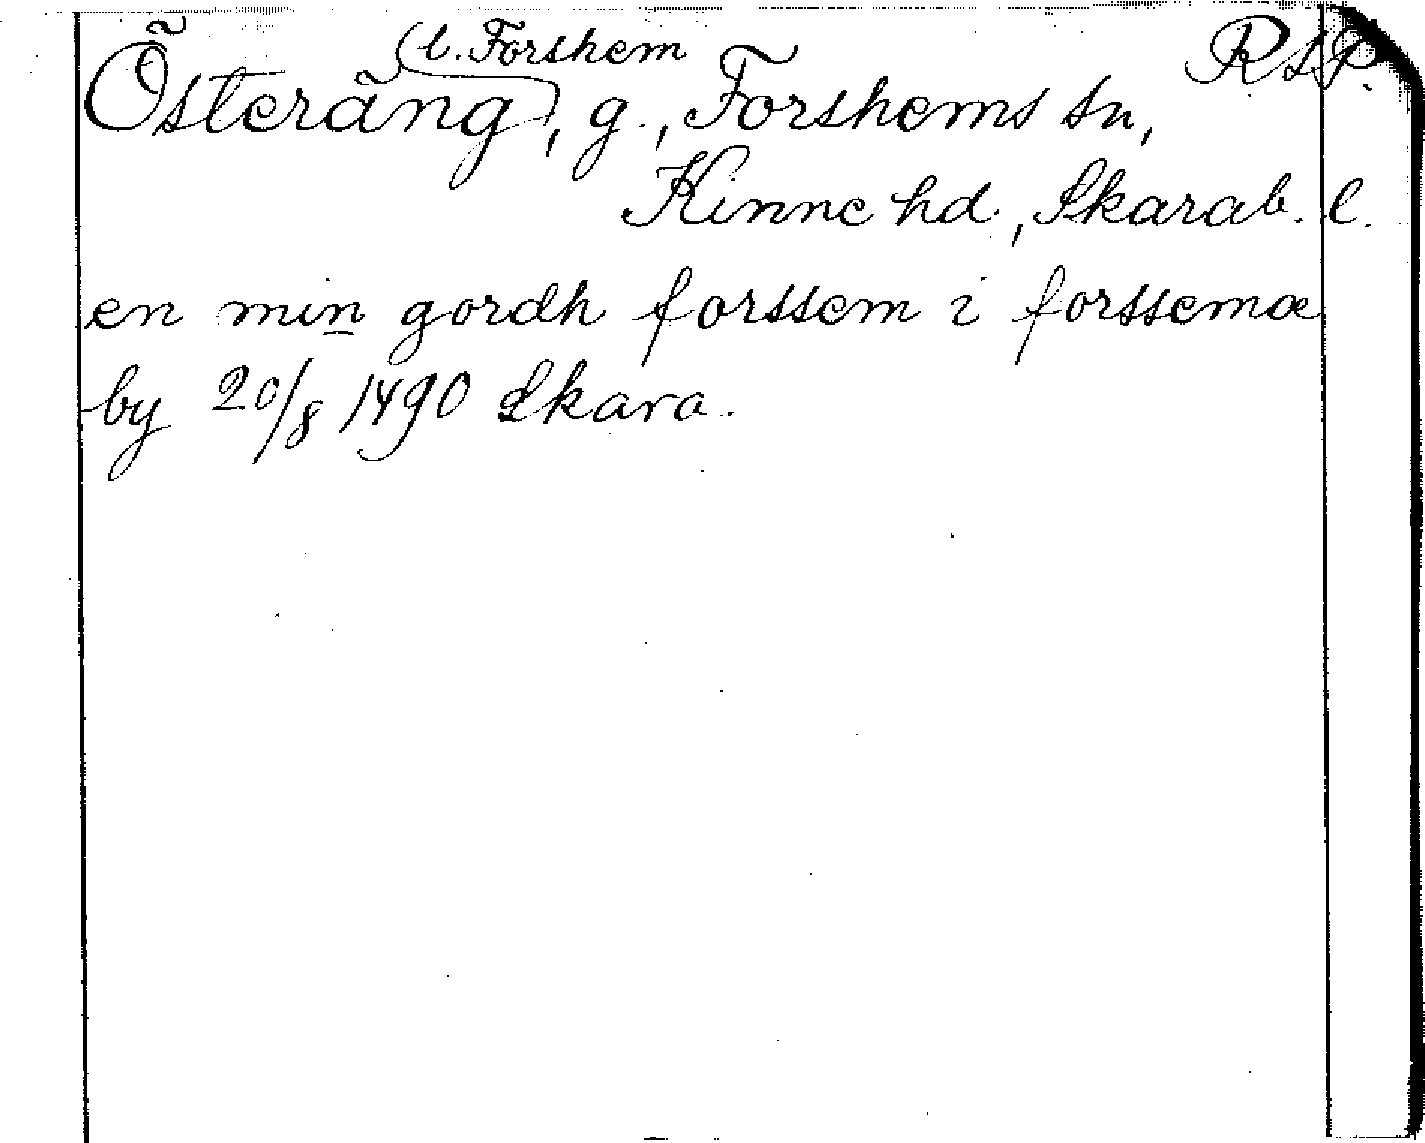 (l. Forshem) RSP.
Österäng, g., Forshems sn,
Kinne hd, Skarab. l.
en min gordh forssem i forssemæ
by 20/8 1490 Skara.